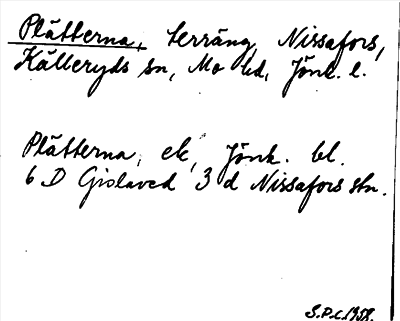 Plätterna, terräng, Nissafors,
Källeryds sn, Mo hd, Jönk. l.
Plätterna, ek, Jönk. bl.
6 D Gislaved 3 d Nissafors stn.
S.P.L. 1958.